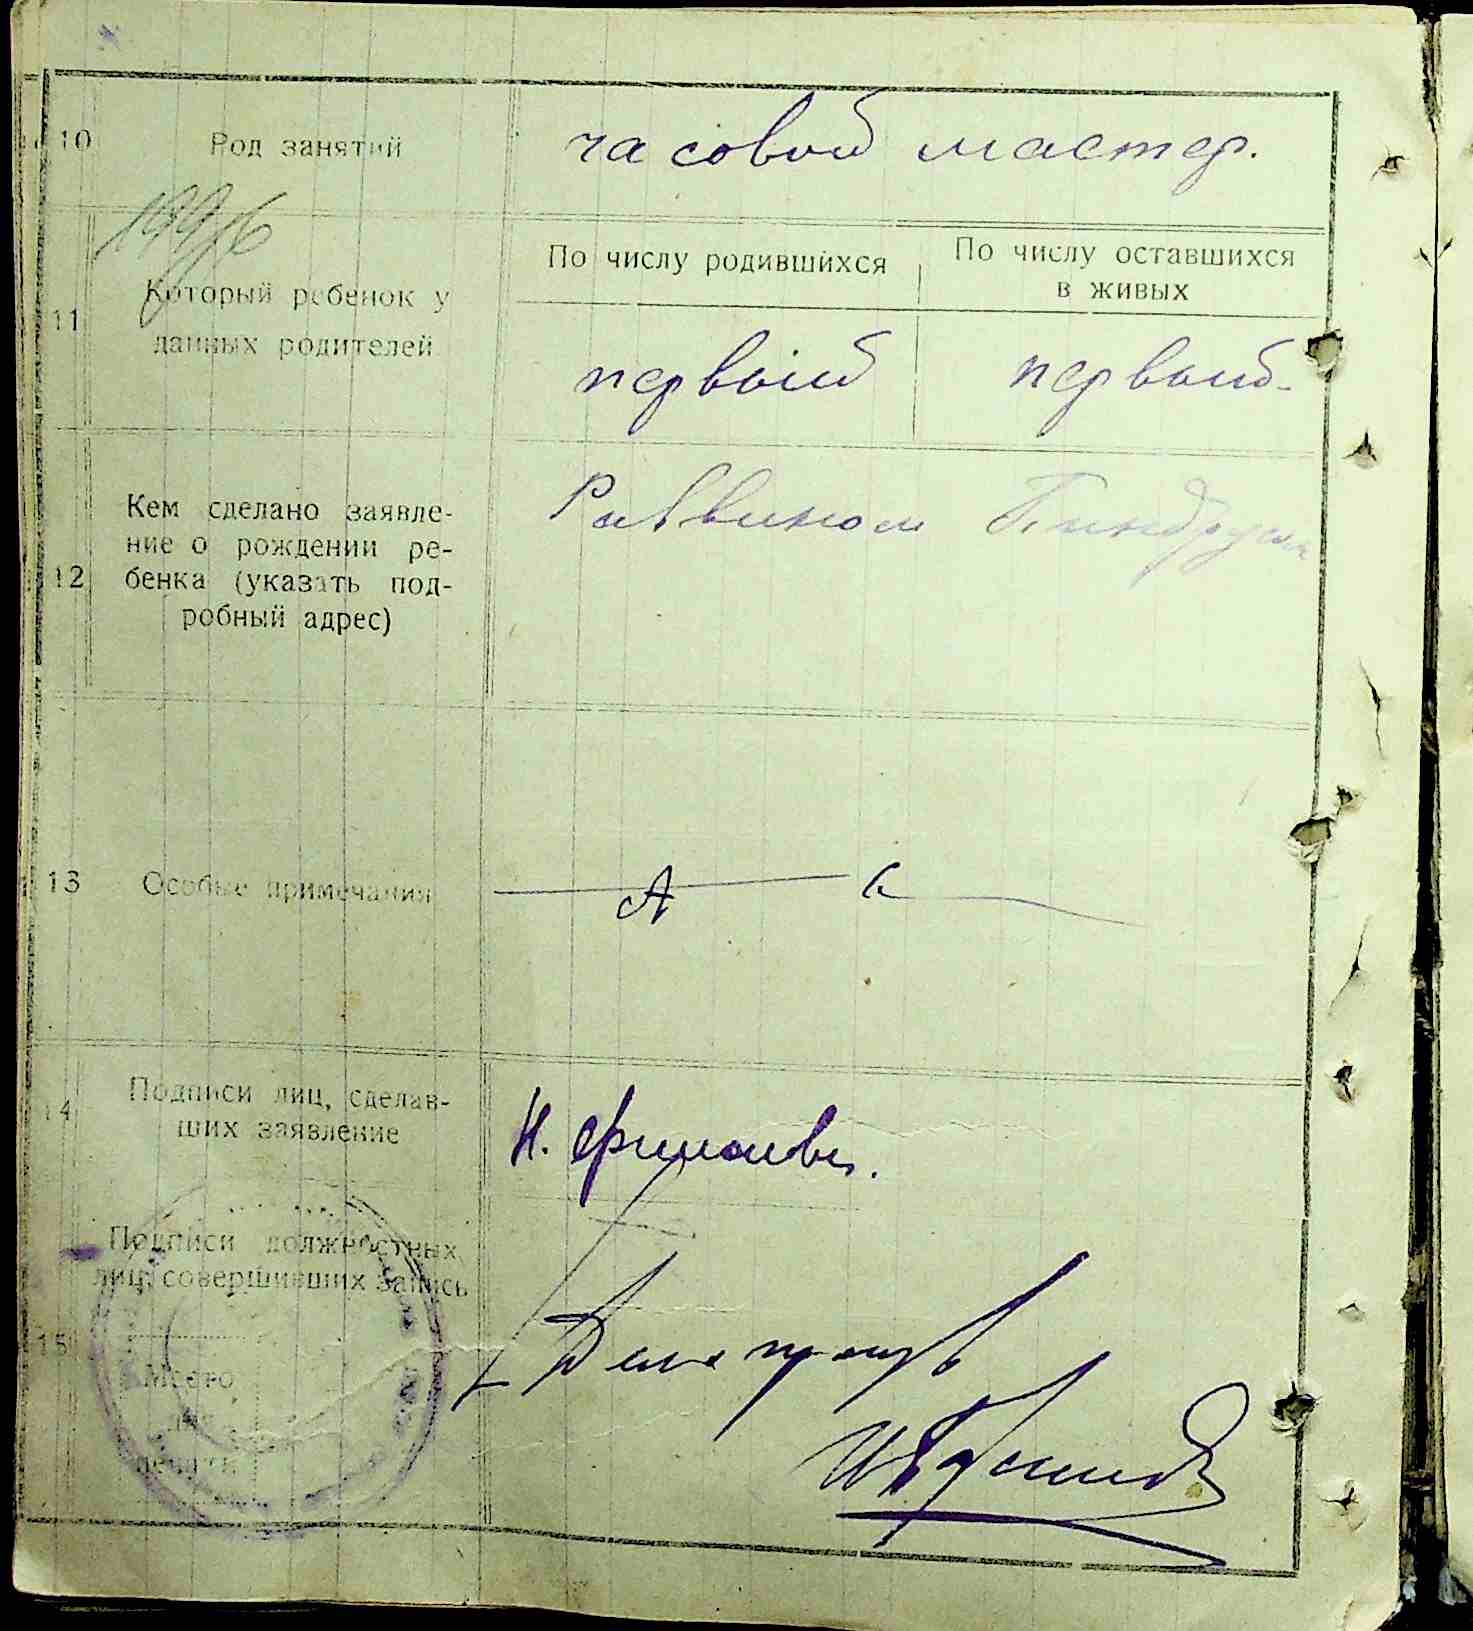 10 Род занятий часовой мастер.
11 Который ребенок у
данных родителей
По числу родившихся
По числу оставшихся
в живых
первый первый
12 Кем сделано заявле-
ние о рождении ре-
бенка (указать под-
робный адрес)
13 Особые примечания
14 Подписи лиц, сделав-
ших заявление
Н.
15 Подписи должностных
лиц, совершивших запись
Место
для
печати